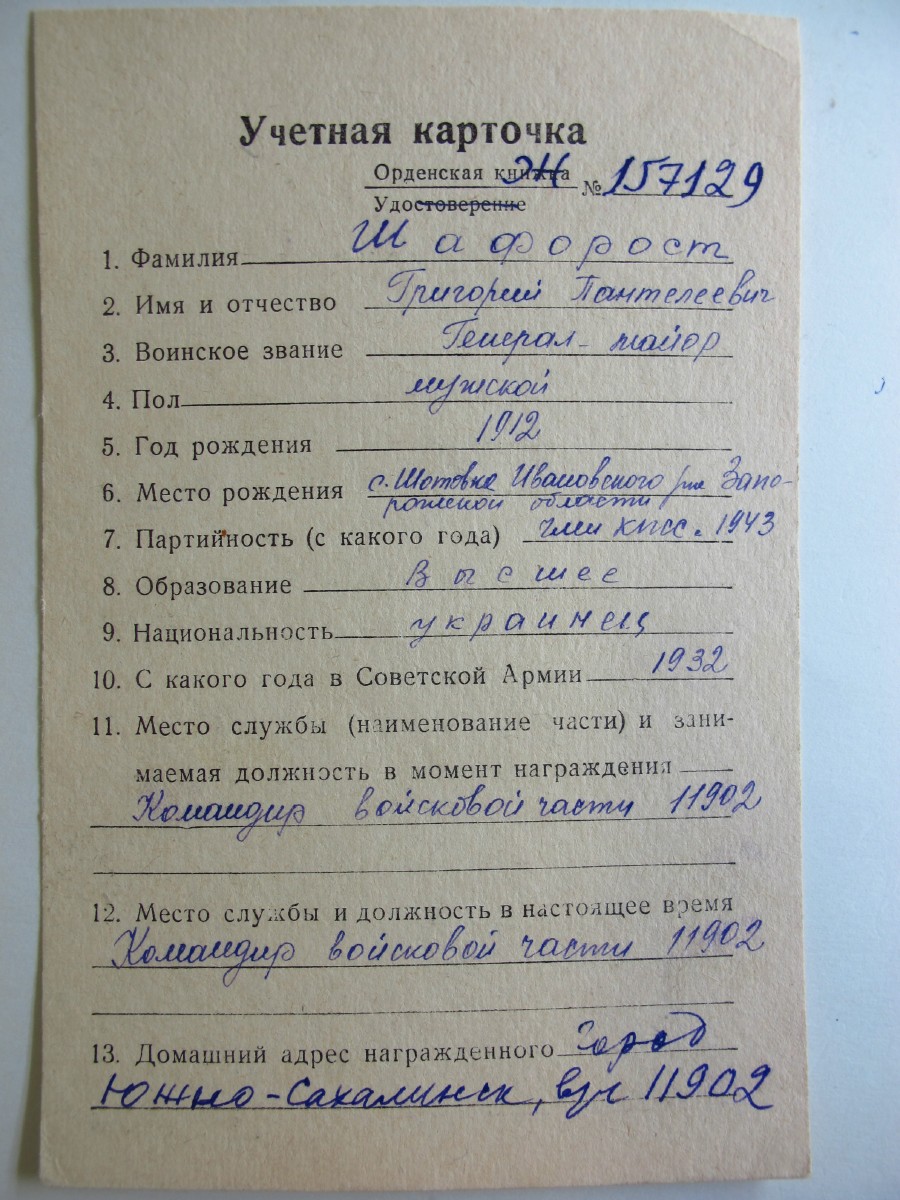 Учетная карточка
Орденская книжка Ж № 157129
Удостоверение
1. Фамилия Шафорост
2. Имя и отчество Григорий Пантелеевич
3. Воинское звание Генерал-майор
4. Пол мужской
5. Год рождения 1912
6. Место рождения с. Шотовка Ивановского р-на Запо-
рожской области
7. Партийность (с какого года) член КПСС с 1943
8. Образование Высшее
9. Национальность украинец
10. С какого года в Советской Армии 1932
11. Место службы (наименование части) и зани-
маемая должность в момент награждения
Командир войсковой части 11902
12. Место службы и должность в настоящее время
Командир войсковой части 11902
13. Домашний адрес награжденного Город
Южно-Сахалинск, в/ч 11902